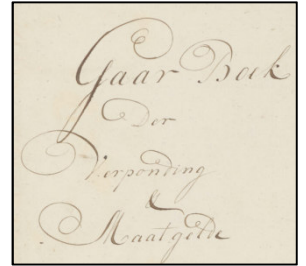 Gaar Boek
Der
Verponding
&
Maatgelde